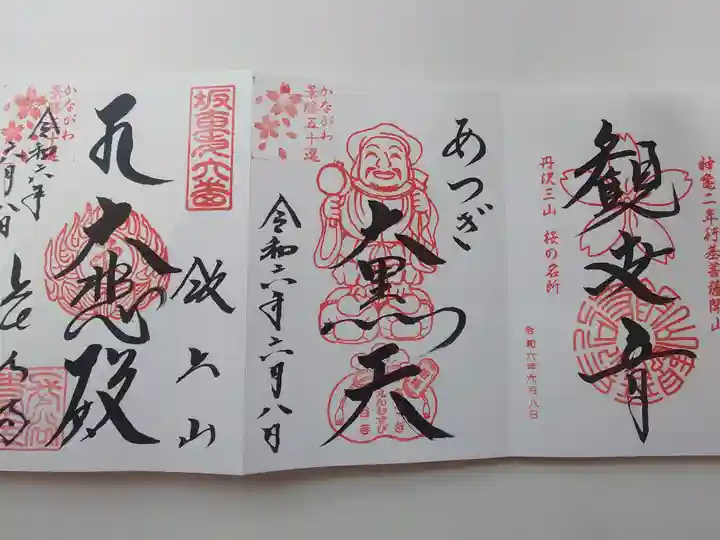 神亀二年行基菩薩開山
観世音
丹沢三山 桜の名所
令和六年六月八日
あつぎ
大黒天
かながわ
景勝五十選
令和六年六月八日
えんむすび
坂東第六番
飯上山
大悲殿
かながわ
景勝
令和六年
六月八日